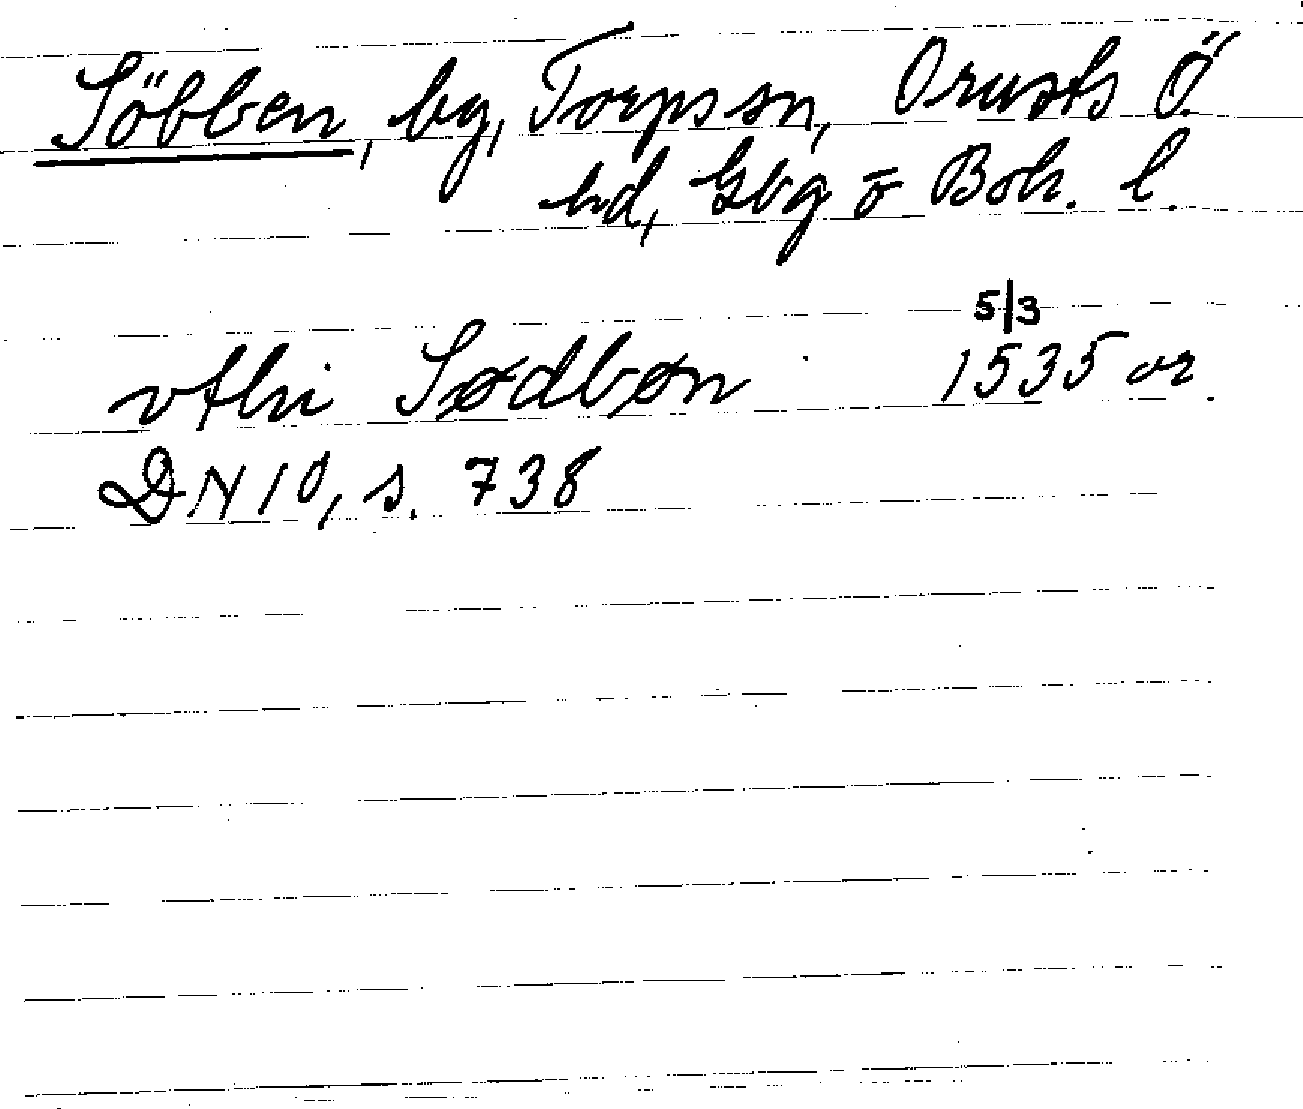 Söbben, by, Torps sn, Orusts Ö.
hd, Gbg o Boh. l.
vthi Sødbøn 5/3 1535 or.
DN 10, s. 738